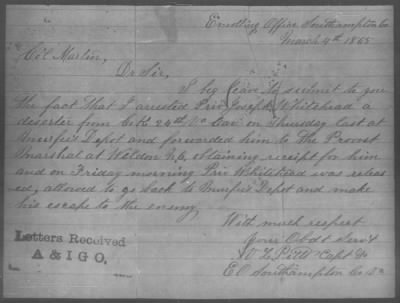 Enrolling Office Southampton Co
March 4th 1865
Col Martin,
Dr Sir,
I beg leave to submit to you
the fact that I arrested Priv Joseph Whitehead a
deserter from 24th Va Cav on Thursday last at
Murfee's Depot and forwarded him to the Provost
Marshal at Weldon N.C. obtaining receipt for him
and on Friday morning Priv Whitehead was releas
ed, allowed to go back to Murfee's Depot and make
his escape to the enemy,
With much respect
Your Obdt Servt
Capt &
E O Southampton Co Va
Letters Received
A & I G O.